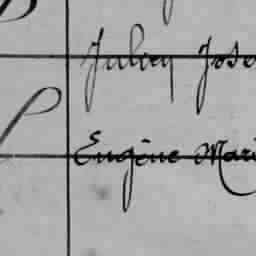 Julien Jose
Eugène Mari